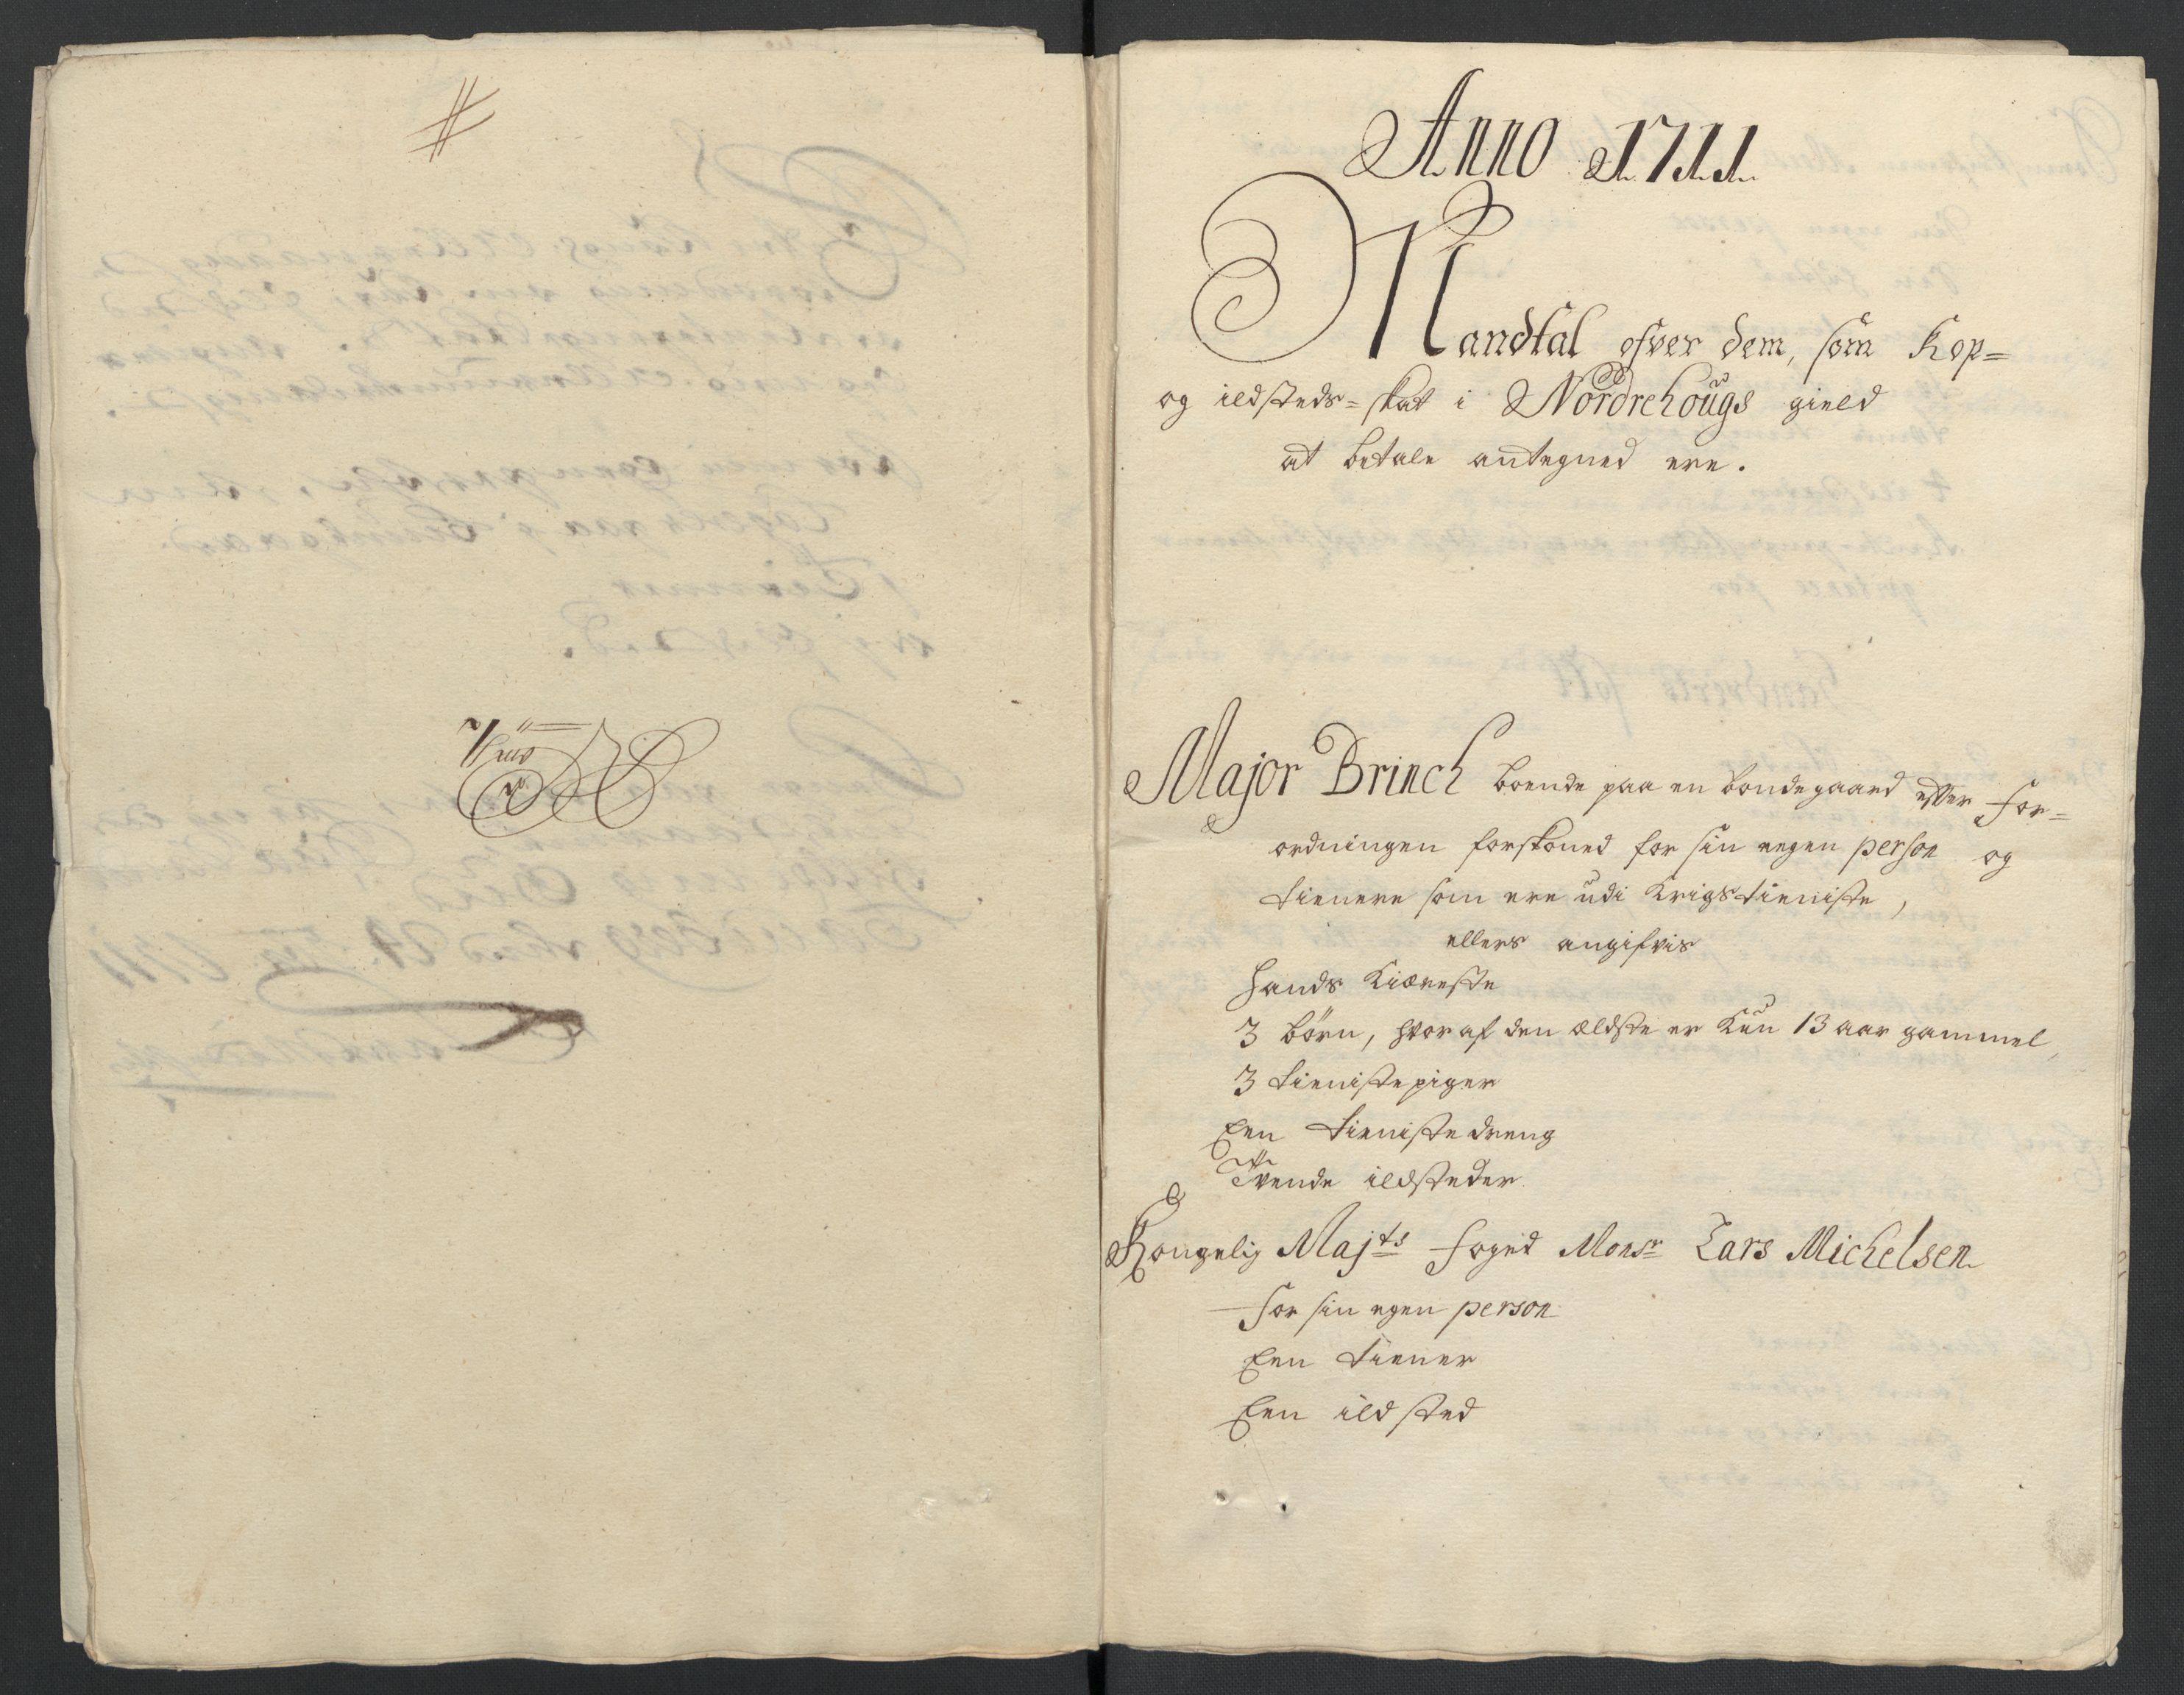 Anno 1711.
Mandtal ofver dem, som Kop=
og ildsteds=skat i Nordrehougs gield
at betale antegned ere.
Major Brinch boende paa en bondegaard efter For=
ordningen forskoned for sin egen person og
tienere som ere udi Krigstieniste,
ellers angifvis
Hands Kiæreste
3 börn, hvoraf den ældste er Kun 13 aar gammel,
3 tienistepiger
Een tienistedreng
Tvende ildsteder
Kongelig Majts Foged Monsr Lars Michelsen
for sin egen person
Een tiener
Een ildsted